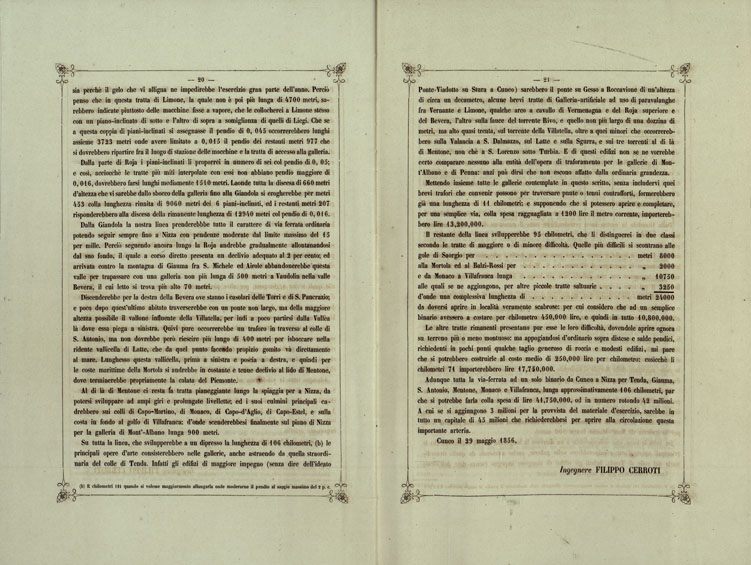 — 20 —
sia perchè il gelo che vi alligna ne impedirebbe l'esercizio gran parte dell'anno. Perciò
penso che in questa tratta di Limone, la quale non è poi più lunga di 4700 metri, sa-
rebbero indicate piuttosto delle macchine fisse a vapore, che le collocherei a Limone stesso
con un piano-inclinato di sotto e l'altro di sopra a somiglianza di quelli di Liegi. Che se
a questa coppia di piani-inclinati si assegnasse il pendio di 0, 045 occorrerebbero lunghi
assieme 3723 metri onde avere limitato a 0,015 il pendio dei restanti metri 977 che
si dovrebbero ripartire fra il luogo di stazione delle macchine e la tratta di accesso alla galleria.
Dalla parte di Roja i piani-inclinati li proporrei in numero di sei col pendio di 0, 05;
e così, acciocchè le tratte più miti interpolate con essi non abbiano pendio maggiore di
0,016, dovrebbero farsi lunghi mediamente 1510 metri. Laonde tutta la discesa di 660 metri
d'altezza che vi sarebbe dallo sbocco della galleria fino alla Giandola si erogherebbe per metri
453 colla lunghezza riunita di 9060 metri dei 6 piani-inclinati, ed i restanti metri 207
risponderebbero alla discesa della rimanente lunghezza di 12940 metri col pendio di 0,016.
Dalla Giandola la nostra linea prenderebbe tutto il carattere di via ferrata ordinaria
potendo seguir sempre fino a Nizza con pendenze moderate dal limite massimo del 15
per mille. Perciò seguendo ancora lungo la Roja andrebbe gradualmente allontanandosi
dal suo fondo, il quale a corso diretto presenta un declivio adequato al 2 per cento; ed
arrivata contro la montagna di Giauma fra S. Michele ed Airole abbandonerebbe questa
valle per trapassare con una galleria non più lunga di 500 metri a Vaudolin nella valle
Bevera, il cui letto si trova più alto 70 metri.
Discenderebbe per la destra della Bevera ove stanno i casolari delle Torri e di S. Pancrazio;
e poco dopo quest'ultimo abitato traverserebbe con un ponte non largo, ma della maggiore
altezza possibile il vallone influente della Villatella, per indi a poco partirsi dalla Vallia
là dove essa piega a sinistra. Quivi pure occorrerebbe un traforo in traverso al colle di
S. Antonio, ma non dovrebbe però riescire più lungo di 400 metri per isboccare nella
ridente vallicella di Latte, che da quel punto facendo propizio gomito va direttamente
al mare. Lunghesso questa vallicella, prima a sinistra e poscia a destra, e quindi per
le coste marittime della Mortola si andrebbe in costante e tenue declivio al lido di Mentone,
dove terminerebbe propriamente la calata del Piemonte.
Al di là di Mentone ci resta la tratta pianeggiante lungo la spiaggia per a Nizza, da
potersi sviluppare ad ampi giri e prolungate livellette; ed i suoi culmini principali ca-
drebbero sui colli di Capo-Martino, di Monaco, di Capo-d'Aglio, di Capo-Estel, e sulla
costa in fondo al golfo di Villafranca: d'onde scenderebbesi finalmente sul piano di Nizza
per la galleria di Mont'-Albano lunga 900 metri.
Su tutta la linea, che svilupperebbe a un dipresso la lunghezza di 106 chilometri, (b) le
principali opere d'arte consisterebbero nelle gallerie, anche astraendo da quella straordi-
naria del colle di Tenda. Infatti gli edifizi di maggiore impegno (senza dire dell'ideato
(b) E chilometri 121 quando si volesse maggiormente allungarla onde moderarne il pendio al saggio massimo del 2 p. c.
— 21 —
Ponte-Viadotto su Stura a Cuneo) sarebbero il ponte su Gesso a Roccavione di un'altezza
di circa un decametro, alcune brevi tratte di Galleria-artificiale ad uso di paravalanghe
fra Vernante e Limone, qualche arco a cavallo di Vermenagna e del Roja superiore e
del Bevera, l'altro sulla fauce del torrente Rivo, e quello non più largo di una dozzina di
metri, ma alto quasi trenta, sul torrente della Villatella, oltre a quei minori che occorrereb-
bero sulla Valancia a S. Dalmazzo, sul Latte e sulla Sgurra, e sui tre torrenti al di là
di Mentone, non chè a S. Lorenzo sotto Turbia. E di questi edifizi non se ne vorrebbe
certo comparare nessuno alla entità dell'opera di traforamento per le gallerie di Mon-
t'Albano e di Penna: anzi può dirsi che non escono affatto dalla ordinaria grandezza.
Mettendo insieme tutte le gallerie contemplate in questo scritto, senza includervi quei
brevi trafori che convenir possono per traversare punte o tumi contrafforti, formerebbero
già una lunghezza di 11 chilometri; e supponendo che si potessero aprire e completare,
per una semplice via, colla spesa ragguagliata a 1200 lire il metro corrente, importereb-
bero lire 13,200,000.
Il restante della linea svilupperebbe 95 chilometri, che li distinguerei in due classi
secondo le tratte di maggiore o di minore difficoltà. Quelle più difficili si scontrano alle
gole di Saorgio per . . . . . . . . . . metri 8000
alla Mortola ed ai Balzi-Rossi per . . . . . . . . . . „ 2000
e da Monaco a Villafranca lungo . . . . . . . . . . „ 10750
alle quali se ne aggiungono, per altre piccole tratte saltuarie . . . . . „ 3250
d'onde una complessiva lunghezza di . . . . . . . . . . metri 24000
da doversi aprire in località veramente scabrose: per cui considero che ad un semplice
binario avessero a costare per chilometro 450,000 lire, e quindi in tutto 10,800,000.
Le altre tratte rimanenti presentano pur esse le loro difficoltà, dovendole aprire ognora
su terreno più o meno montuoso: ma appogiandosi d'ordinario sopra distese e salde pendici,
richiedenti in pochi punti qualche taglio generoso di roccia e modesti edifizi, mi pare
che si potrebbero costruirle al costo medio di 250,000 lire per chilometro: cosicchè li
chilometri 71 importerebbero lire 17,750,000.
Adunque tutta la via-ferrata ad un solo binario da Cuneo a Nizza per Tenda, Giauma,
S. Antonio, Mentone, Monaco e Villafranca, lunga approssimativamente 106 chilometri, par
che si potrebbe farla colla spesa di lire 41,750,000, od in numero rotondo 42 milioni.
A cui se si aggiungono 3 milioni per la provvista del materiale d'esercizio, sarebbe in
tutto un capitale di 45 milioni che richiederebbesi per aprire alla circolazione questa
importante arteria.
Cuneo il 29 maggio 1856.
Ingegnere FILIPPO CERROTI